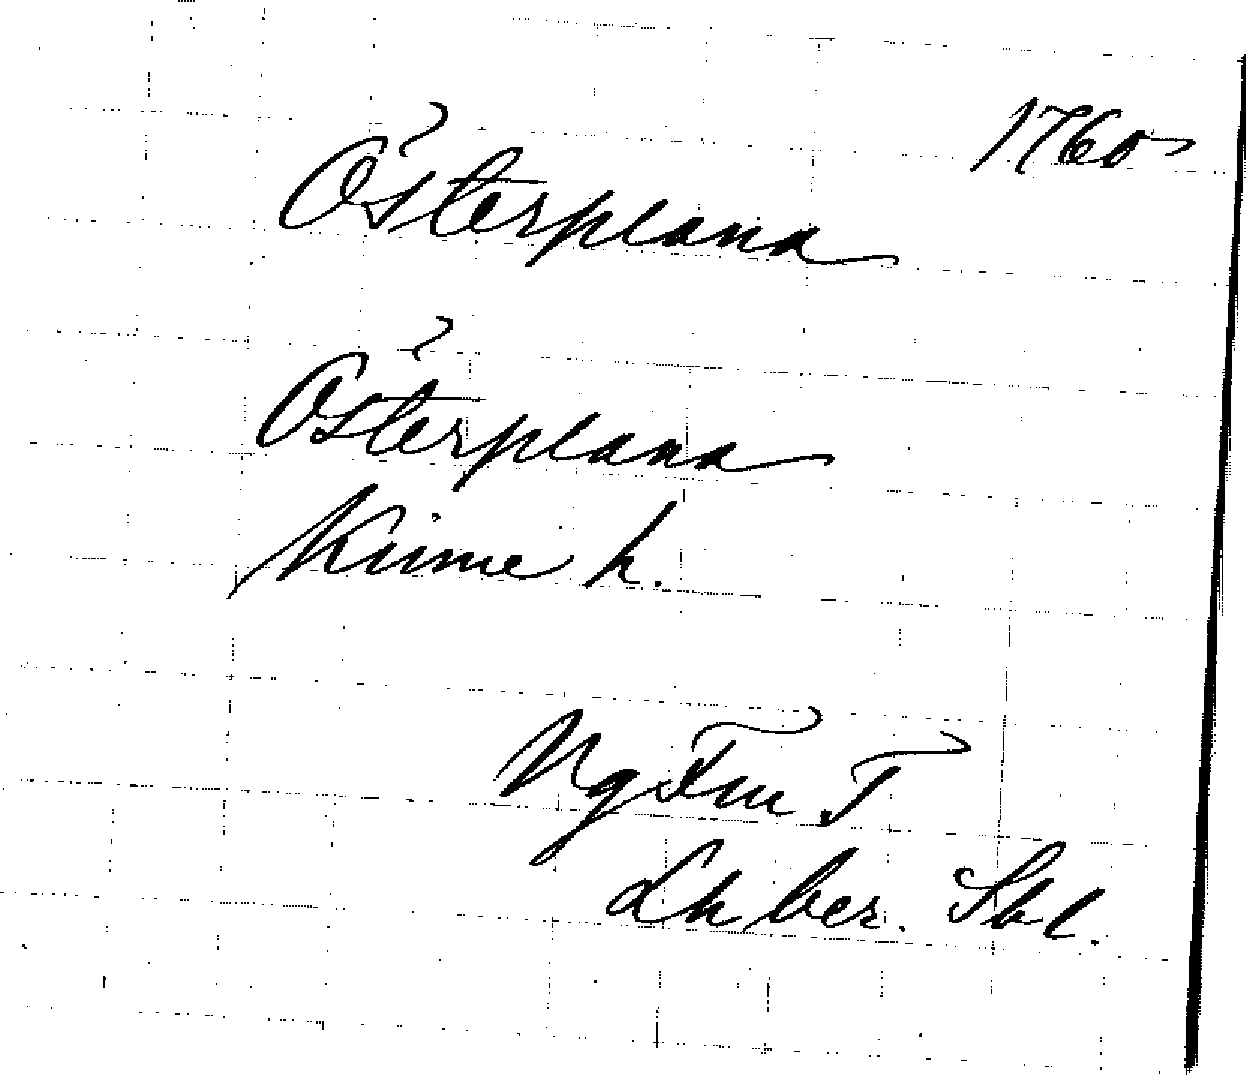 1760
Österplana
Österplana
Kinne h.
Ng
Lh ber. Sbl.